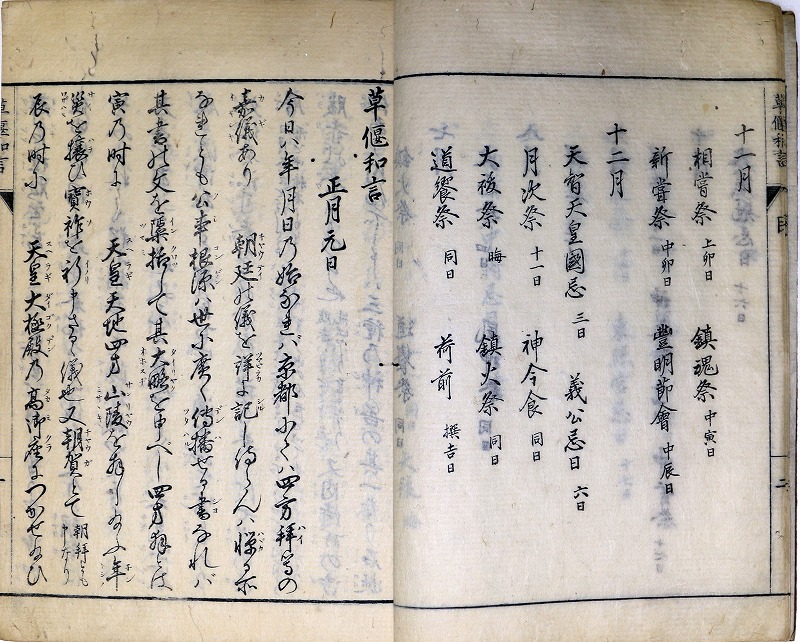 十一月
相嘗祭 上卯日 鎮魂祭 中寅日
新嘗祭 中卯日 豊明節會 中辰日
十二月
天智天皇國忌 三日 義公忌日 六日
月次祭 十一日 神今食 同日
大祓祭 晦 鎮火祭 同日
道饗祭 同日 荷前 撰吉日
草偃和言
正月元日
今日ハ年月日乃始なれバ京都にてハ四方拝等の
嘉儀あり 朝廷の儀を詳に記し侍らんハ憚る所
なれども公事根源ハ世に廣く傳播せる書なれバ
其書の文を檃括して其大略を申べし四方拝とは
寅乃時に 天皇天地四方山陵を拝し給ふ年
災を攘ひ寳祚を祈申さるゝ儀也又朝賀とて 朝拝とも申なり
辰乃時に 天皇大極殿乃髙御座につかせ給ひ
草偃和言
二